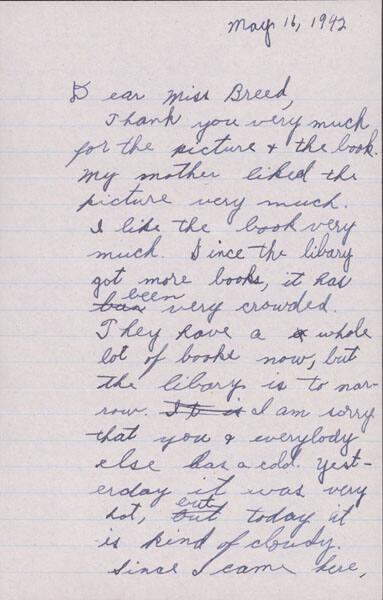 May 16, 1942
Dear Miss Breed,
Thank you very much
for the picture & the book.
My mother liked the
picture very much.
I like the book very
much. Since the libary
got more books, it has
been
very crowded.
They have a whole
lot of books now, but
the libary is to nar-
row. It is I am sorry
that you & everybody
else has a cold. Yest-
erday it was very
hot, but today it
is kind of cloudy.
Since I came here,